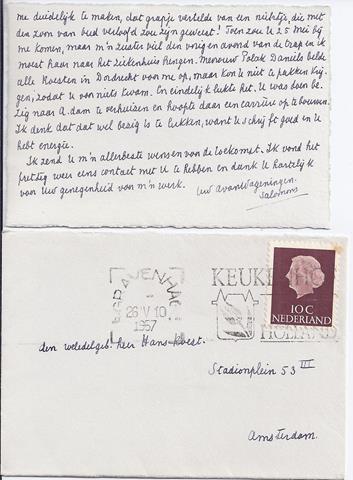 me duidelijk te maken, dat grapje vertelde van een nichtje, die met
den zoon van bed verloofd zou zijn geweest! Toen zou U 25 mei bij
me komen, maar m'n zuster viel den vorigen avond van de trap en ik
moest haar naar het ziekenhuis brengen. Mevrouw Polak Daniels belde
alle Roesten in Dordrecht voor me op, maar kon U niet te pakken krij-
gen, zodat U voor niets kwam. En eindelijk lukte het. U was doen be-
zig naar A.dam te verhuizen en hoopte daar een carrière op te bouwen.
Ik denk dat dat wel bezig is te lukken, want U schrijft goed en U
hebt energie.
Ik zend U m'n allerbeste wensen voor de toekomst. Ik vond het
prettig weer eens contact met U te hebben en dank U hartelijk
van Uw genegenheid voor m'n werk. Uw
Salomons
'S-GRAVENHAGE
26 IV 10
1957
KEUKENHOF
HOLLAND
10 C
NEDERLAND
den weledelgeb. Heer Hans Roest.
Stadionplein 53 III
Amsterdam.